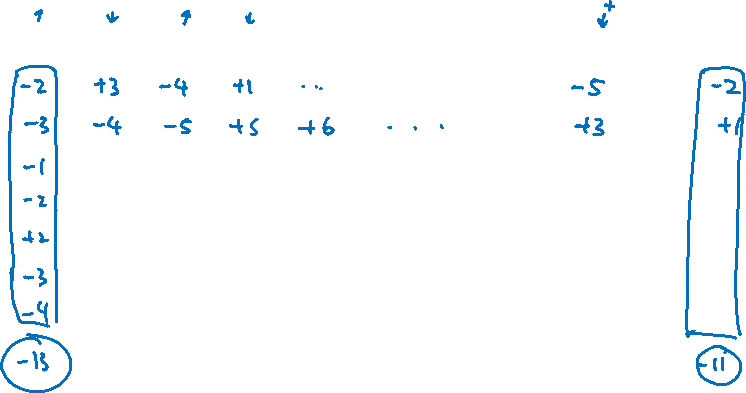 ↑ ↓ ↑ ↓ ↓+
-2 +3 -4 +1 .. -5 -2
-3 -4 -5 +5 +6 ... +3 +1
-1
-2
+2
-3
-4
-13 -11